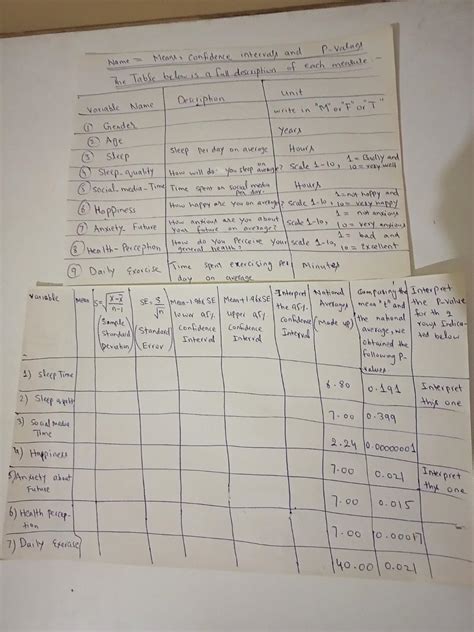 Name = Means, Confidence intervals and P-values
The Table below is a full description of each measure.
Variable Name Description Unit
① Gender write in "M" or "F" or "T"
② Age Years
③ Sleep Sleep Per day on average Hours
④ Sleep-quality How will do you sleep on average? Scale 1-10, 1 = Badly and 10 = very well
⑤ Social-media-Time Time spent on social media per day. Hours
⑥ Happiness How happy are you on average? Scale 1-10, 1 = not happy and 10 = very happy
⑦ Anxiety Future How anxious are you about your future on average? Scale 1-10, 1 = not anxious 10 = very anxious
⑧ Health-Perception How do you Perceive your general health? Scale 1-10, 1 = bad and 10 = Excellent
⑨ Daily Exercise Time spent exercising Per day on average Minutes
Variable Mean S = √x-x̄/n-1 (Sample Standard Deviation) SE = S/√n (Standard Error) Mean-1.96xSE lower 95% Confidence Interval Mean+1.96xSE upper 95% Confidence Interval Interpret the 95% confidence Interval National Averages (Made up) Comparing the mean and the national average, we obtained the following P-values Interpret the P-value for th 2 rows Indicated below
1) Sleep Time 6.80 0.191 Interpret this one
2) Sleep quality 7.00 0.399
3) Social media Time 2.24 0.0000001
4) Happiness 7.00 0.021 Interpret this one
5) Anxiety about Future 7.00 0.015
6) Health perception 7.00 0.00017
7) Daily Exercise 40.00 0.021